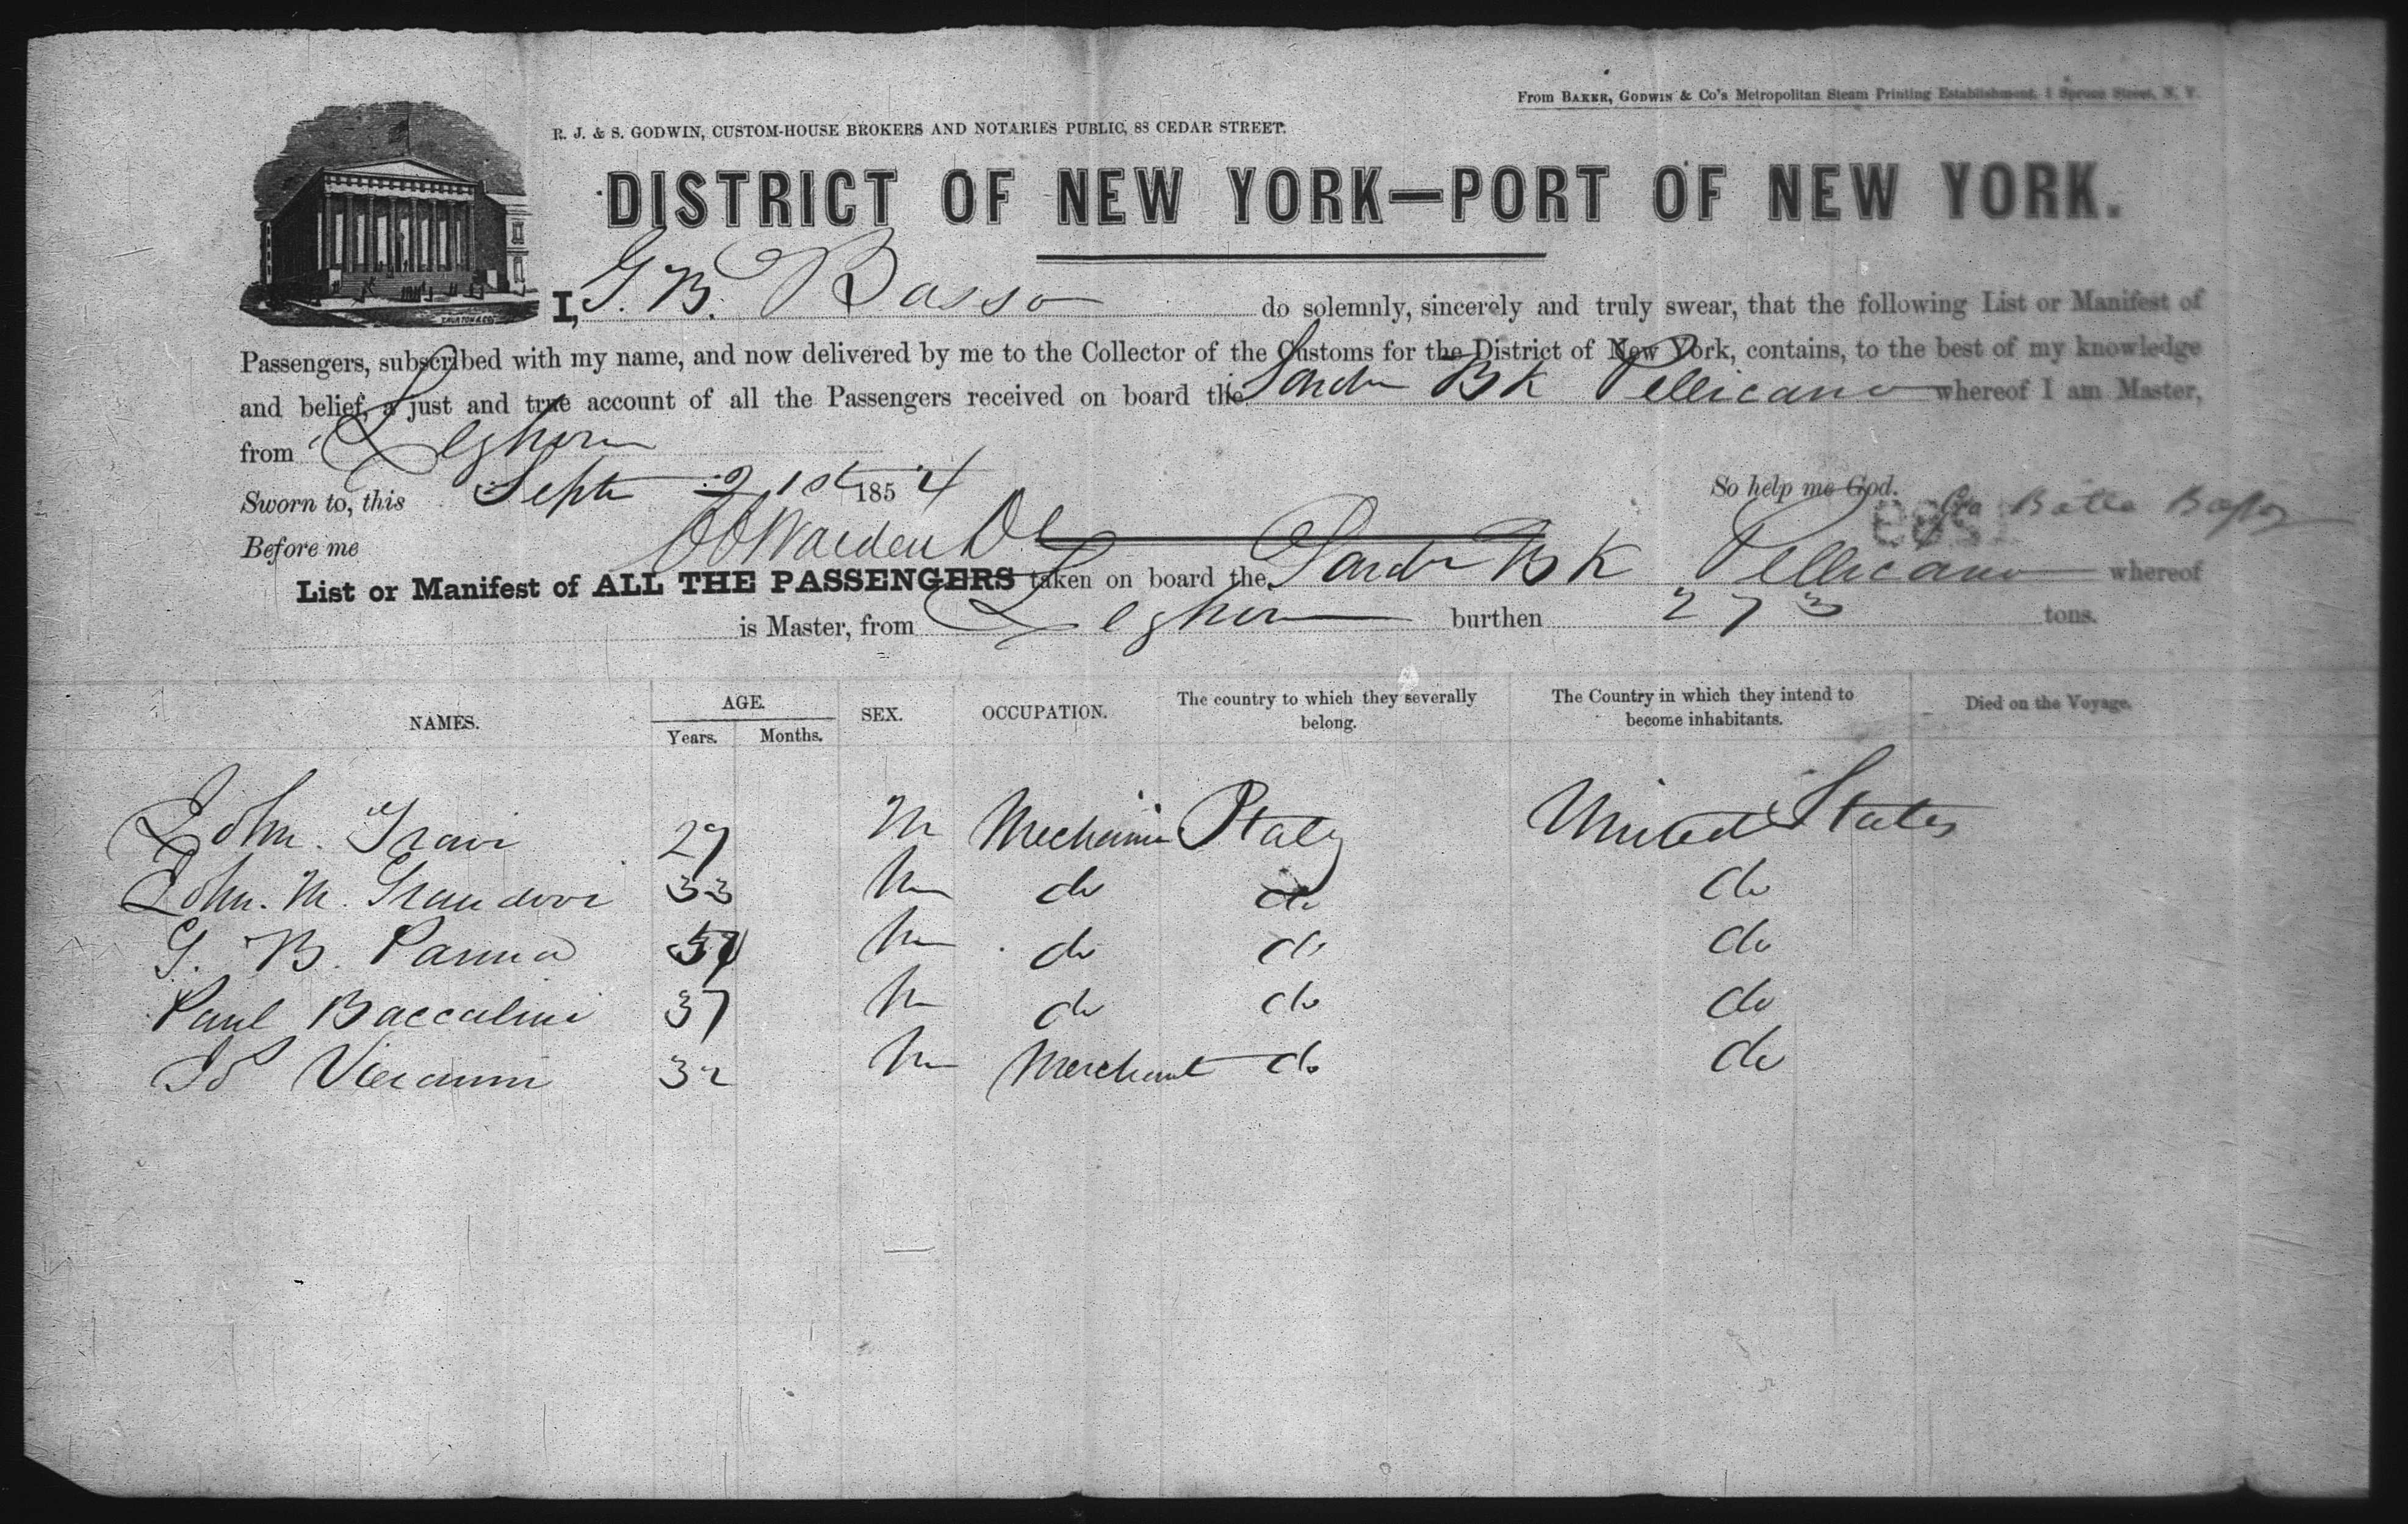 From BAKER, GODWIN & Co's Metropolitan Steam Printing Establishment, 1 Spruce Street, N. Y.
R. J. & S. GODWIN, CUSTOM-HOUSE BROKERS AND NOTARIES PUBLIC, 88 CEDAR STREET.
DISTRICT OF NEW YORK—PORT OF NEW YORK.
I, G. B. Basso do solemnly, sincerely and truly swear, that the following List or Manifest of
Passengers, subscribed with my name, and now delivered by me to the Collector of the Customs for the District of New York, contains, to the best of my knowledge
and belief, a just and true account of all the Passengers received on board the Sardn Bk Pellicano whereof I am Master,
from Leghorn
Sworn to, this Sept 21st 1854 So help me God.
Before me
List or Manifest of ALL THE PASSENGERS taken on board the Sardn Bk Pellicano whereof
is Master, from Leghorn burthen 273 tons.
NAMES. AGE. Years. Months. SEX. OCCUPATION. The country to which they severally belong. The Country in which they intend to become inhabitants. Died on the Voyage.
John. 29 M Mechanic Italy United States
John. M. 33 M do do do
G. B. Parma M do do do
Paul Baccalini 37 M do do do
32 M Merchant do do